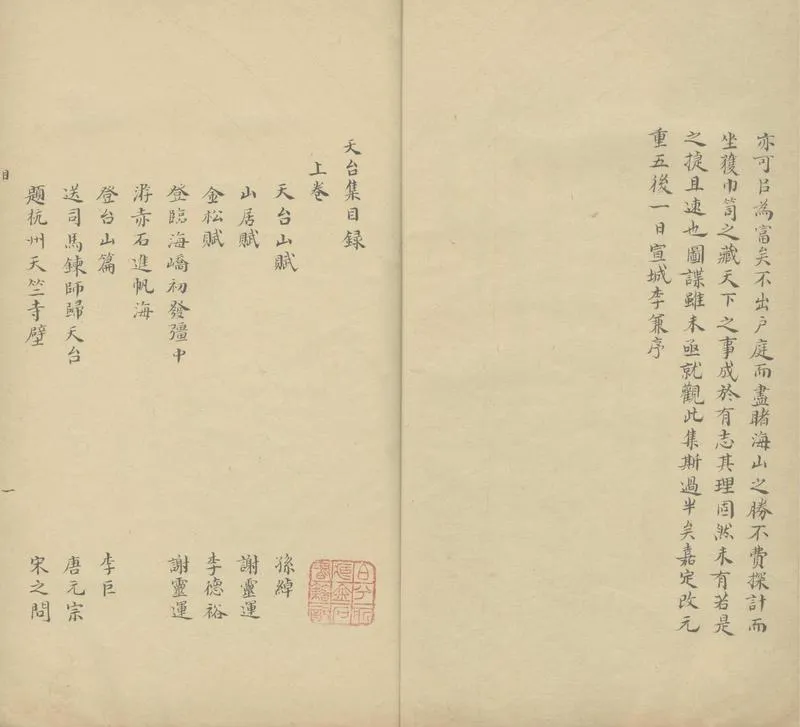 亦可㠯為富矣不出户庭而盡睹海山之勝不費探計而
坐獲巾笥之藏天下之事成於有志其理固然未有若是
之捷且速也圖諜雖未亟就觀此集斯過半矣嘉定改元
重五後一日宣城李兼序
天台集目録
上卷
天台山賦 孫綽
山居賦 謝靈運
金松賦 李德裕
登臨海嶠初發彊中 謝靈運
游赤石進帆海
登台山篇 李巨
送司馬鍊師歸天台 唐元宗
題杭州天竺寺壁 宋之問
目
一